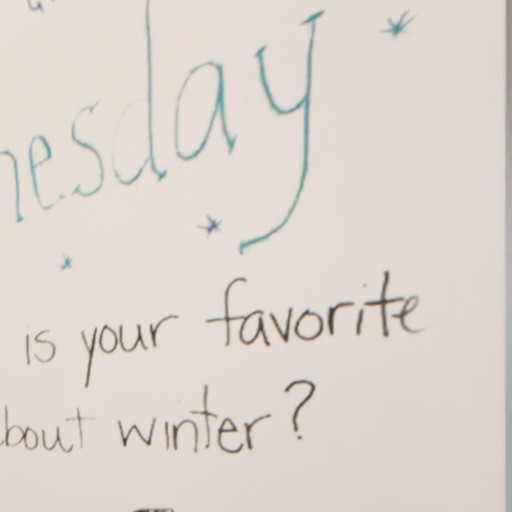 nesday
is your favorite
bout winter?